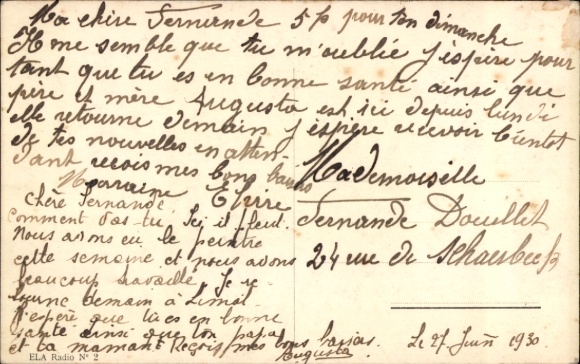 Ma chère Fernande 5f pour ton dimanche
Il me semble que tu m'oublié j'espère pour
tant que tu es en bonne santé ainsi que
père et mère Augusta est ici depuis lundi
elle retourne demain j'espère recevoir bientot
de tes nouvelles en atten
dant reçois mes bons baisers
Marraine
Chère Fernande.
comment vas-tu. Ici il pleut.
Nous avons eu le peintre
cette semaine et nous avons
beaucoup travaillé Je re
tourne demain à Limal
J'espère que tu es en bonne
santé ainsi que ton papa
et ta maman Reçois mes bons baisers.
Augusta
ELA Radio N° 2
Mademoiselle
Fernande Douillet
24 rue de Schaerbeek
Le 27 Juin 1930